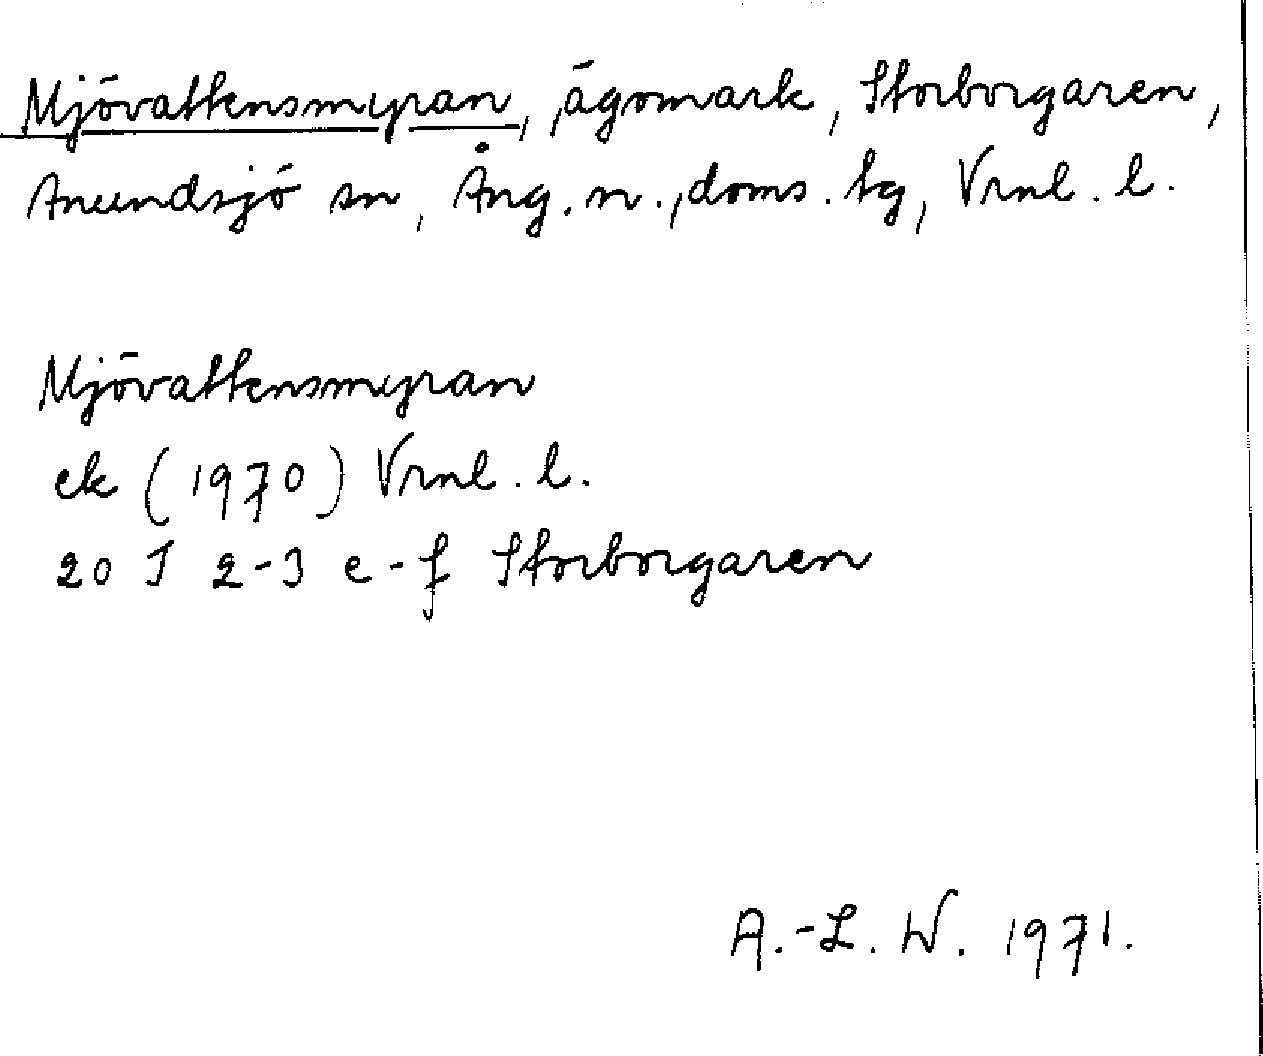 Mjövattensmyran, ägomark, Storborgaren,
Anundsjö sn, Ång. n., doms. tg, Vrnl. l.
Mjövattensmyran
ek (1970) Vrnl. l.
20 I 2-3 e-f Storborgaren
A.-L. W. 1971.